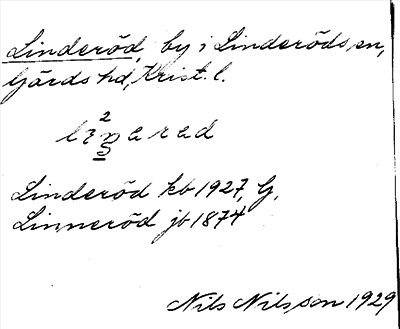 Linderöd, by i Linderöds sn,
Gärds hd, Krist. l.
Linderöd kb 1927, G.
Linneröd jb 1874
Nils Nilsson 1929